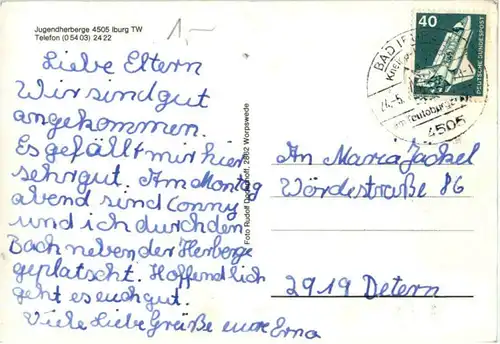 Jugendherberge 4505 Iburg TW
Telefon (0 54 03) 24 22
1,-
Liebe Eltern
Wir sind gut
angekommen.
Es gefällt mir hier
sehr gut. Am Montag
abend sind Conny
und ich durch den
Bach neben der Herberge
geplatscht. Hoffendlich
geht es euch gut.
Viele Liebe Grüße eure Erna
Foto Rudolf 2862 Worpswede
40
DEUTSCHE BUNDESPOST
BAD IBURG
4505
An Maria Jackel
Wördestraße 86
2919 Detern